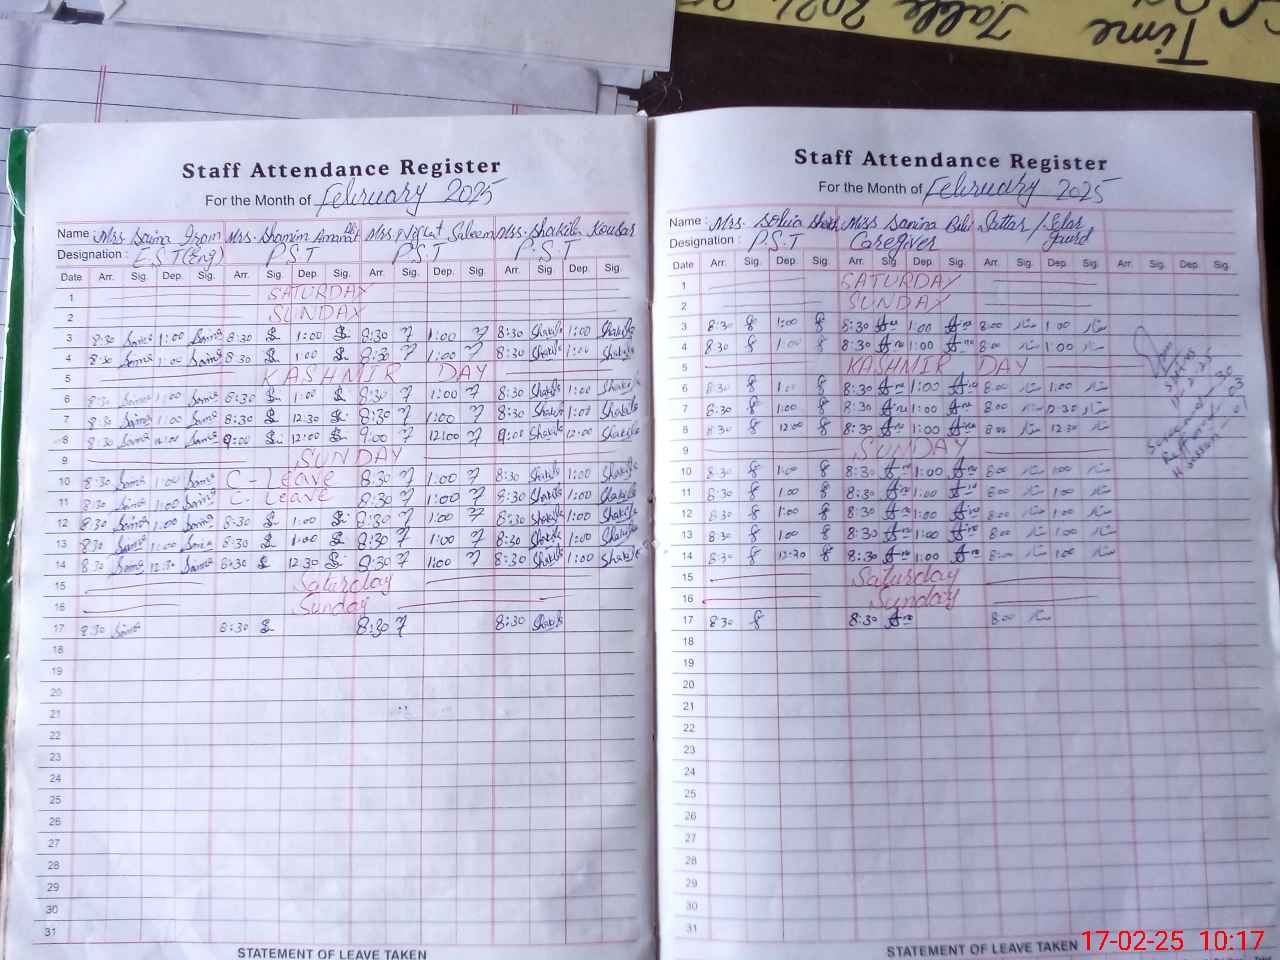 Time
Table 202
Staff Attendance Register
For the Month of February 2025
Name : Mrs. Saira Iram Mrs. Shamim Amanat Mrs. Nighat Saleem Mrs. Shakila Kousar
Designation : E.S.T(Eng) P.S.T P.S.T P.S.T
Date Arr. Sig. Dep. Sig. Arr. Sig. Dep. Sig. Arr. Sig. Dep. Sig. Arr. Sig. Dep. Sig.
1 SATURDAY
2 SUNDAY
3 8:30 1:00 8:30 1:00 8:30 1:00 8:30 Shakila 1:00 Shakila
4 8:30 1:00 8:30 1:00 8:30 1:00 8:30 Shakila 1:00 Shakila
5 KASHMIR DAY
6 8:30 1:00 8:30 1:00 8:30 1:00 8:30 Shakila 1:00 Shakila
7 8:30 1:00 8:30 12:30 8:30 1:00 8:30 Shakila 1:00 Shakila
8 8:30 12:00 9:00 12:00 9:00 12:00 9:00 Shakila 12:00 Shakila
9 SUNDAY
10 8:30 1:00 C-Leave 8:30 1:00 8:30 Shakila 1:00 Shakila
11 8:30 1:00 C-Leave 8:30 1:00 8:30 Shakila 1:00 Shakila
12 8:30 1:00 8:30 1:00 8:30 1:00 8:30 Shakila 1:00 Shakila
13 8:30 1:00 8:30 1:00 8:30 1:00 8:30 Shakila 1:00 Shakila
14 8:30 12:30 8:30 12:30 8:30 1:00 8:30 Shakila 1:00 Shakila
15 Saturday
16 Sunday
17 8:30 8:30 8:30 8:30 Shakila
18
19
20
21
22
23
24
25
26
27
28
29
30
31
STATEMENT OF LEAVE TAKEN
Staff Attendance Register
For the Month of February 2025
Name : Mrs. Miss Samina Bibi Sattar /
Designation : P.S.T Caregiver Guard
Date Arr. Sig. Dep. Sig. Arr. Sig. Dep. Sig. Arr. Sig. Dep. Sig. Arr. Sig. Dep. Sig.
1 SATURDAY
2 SUNDAY
3 8:30 1:00 8:30 1:00 8:00 1:00
4 8:30 1:00 8:30 1:00 8:00 1:00
5 KASHMIR DAY
6 8:30 1:00 8:30 1:00 8:00 1:00
7 8:30 1:00 8:30 1:00 8:00 12:30
8 8:30 12:00 8:30 1:00 8:00 12:30
9 SUNDAY
10 8:30 1:00 8:30 1:00 8:00 1:00
11 8:30 1:00 8:30 1:00 8:00 1:00
12 8:30 1:00 8:30 1:00 8:00 1:00
13 8:30 1:00 8:30 1:00 8:00 1:00
14 8:30 12:30 8:30 1:00 8:00 1:00
15 Saturday
16 Sunday
17 8:30 8:30 8:00
18
19
20
21
22
23
24
25
26
27
28
29
30
31
STATEMENT OF LEAVE TAKEN
17-02-25 10:17